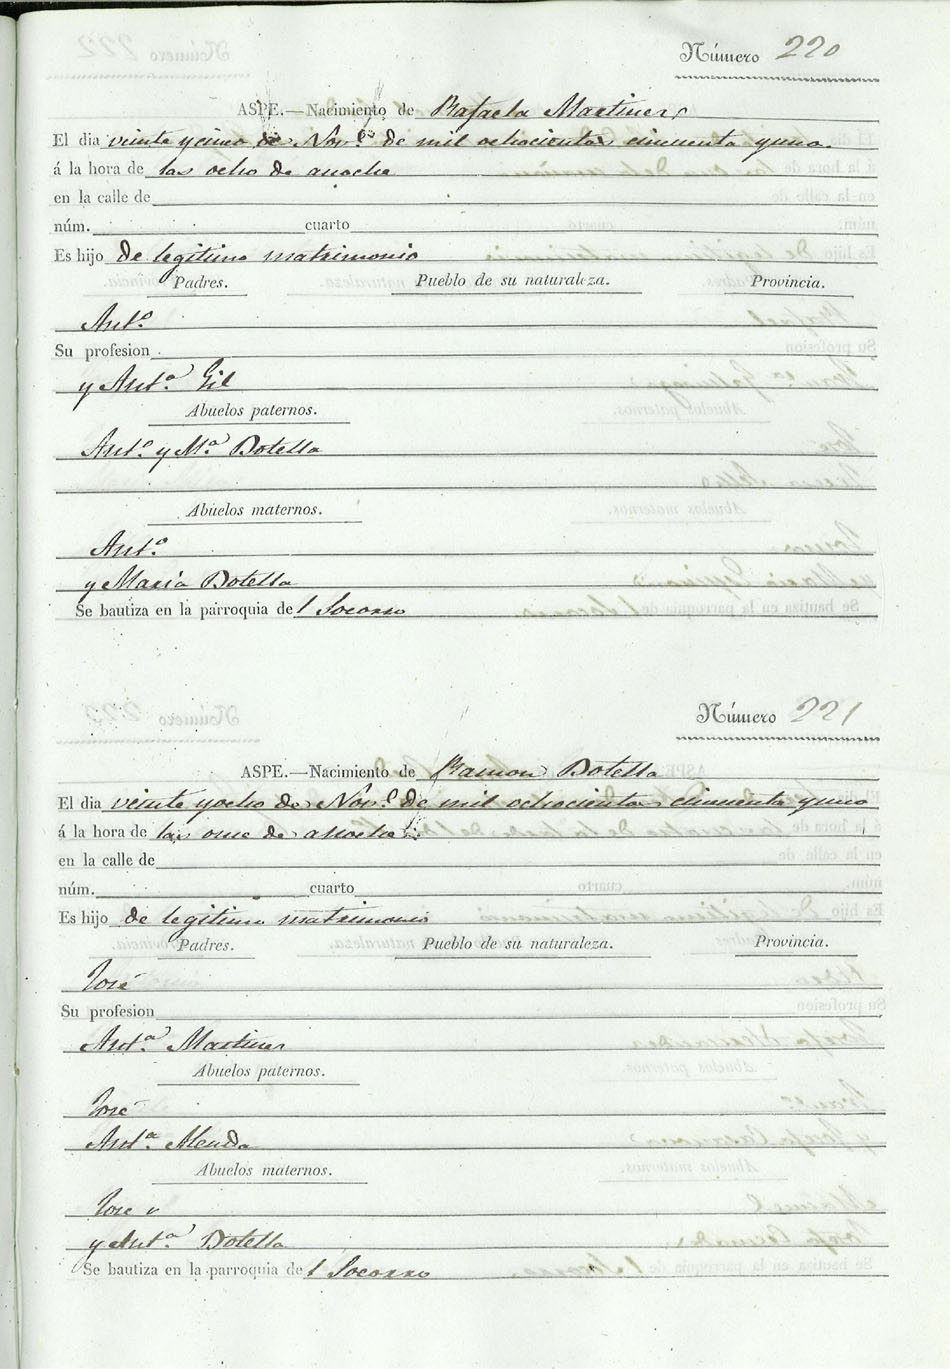 Número 220
ASPE.—Nacimiento de Rafaela Martinez
El dia veinte y cinco de Nov.e de mil ochocientos cincuenta y uno
á la hora de las ocho de anoche
en la calle de
núm. cuarto
Es hijo de legitimo matrimonio
Padres. Pueblo de su naturaleza. Provincia.
Ant.o
Su profesion
y Ant.a Gil
Abuelos paternos.
Ant.o y M.a Botella
Abuelos maternos.
Ant.o
y Maria Botella
Se bautiza en la parroquia de l Socorro
Número 221
ASPE.—Nacimiento de Ramon Botella
El dia veinte y ocho de Nov.e de mil ochocientos cincuenta y uno
á la hora de las once de anoche
en la calle de
núm. cuarto
Es hijo de legitimo matrimonio
Padres. Pueblo de su naturaleza. Provincia.
José
Su profesion
Ant.a Martinez
Abuelos paternos.
José
Ant.a Alenda
Abuelos maternos.
José y
y Ant.a Botella
Se bautiza en la parroquia de l Socorro